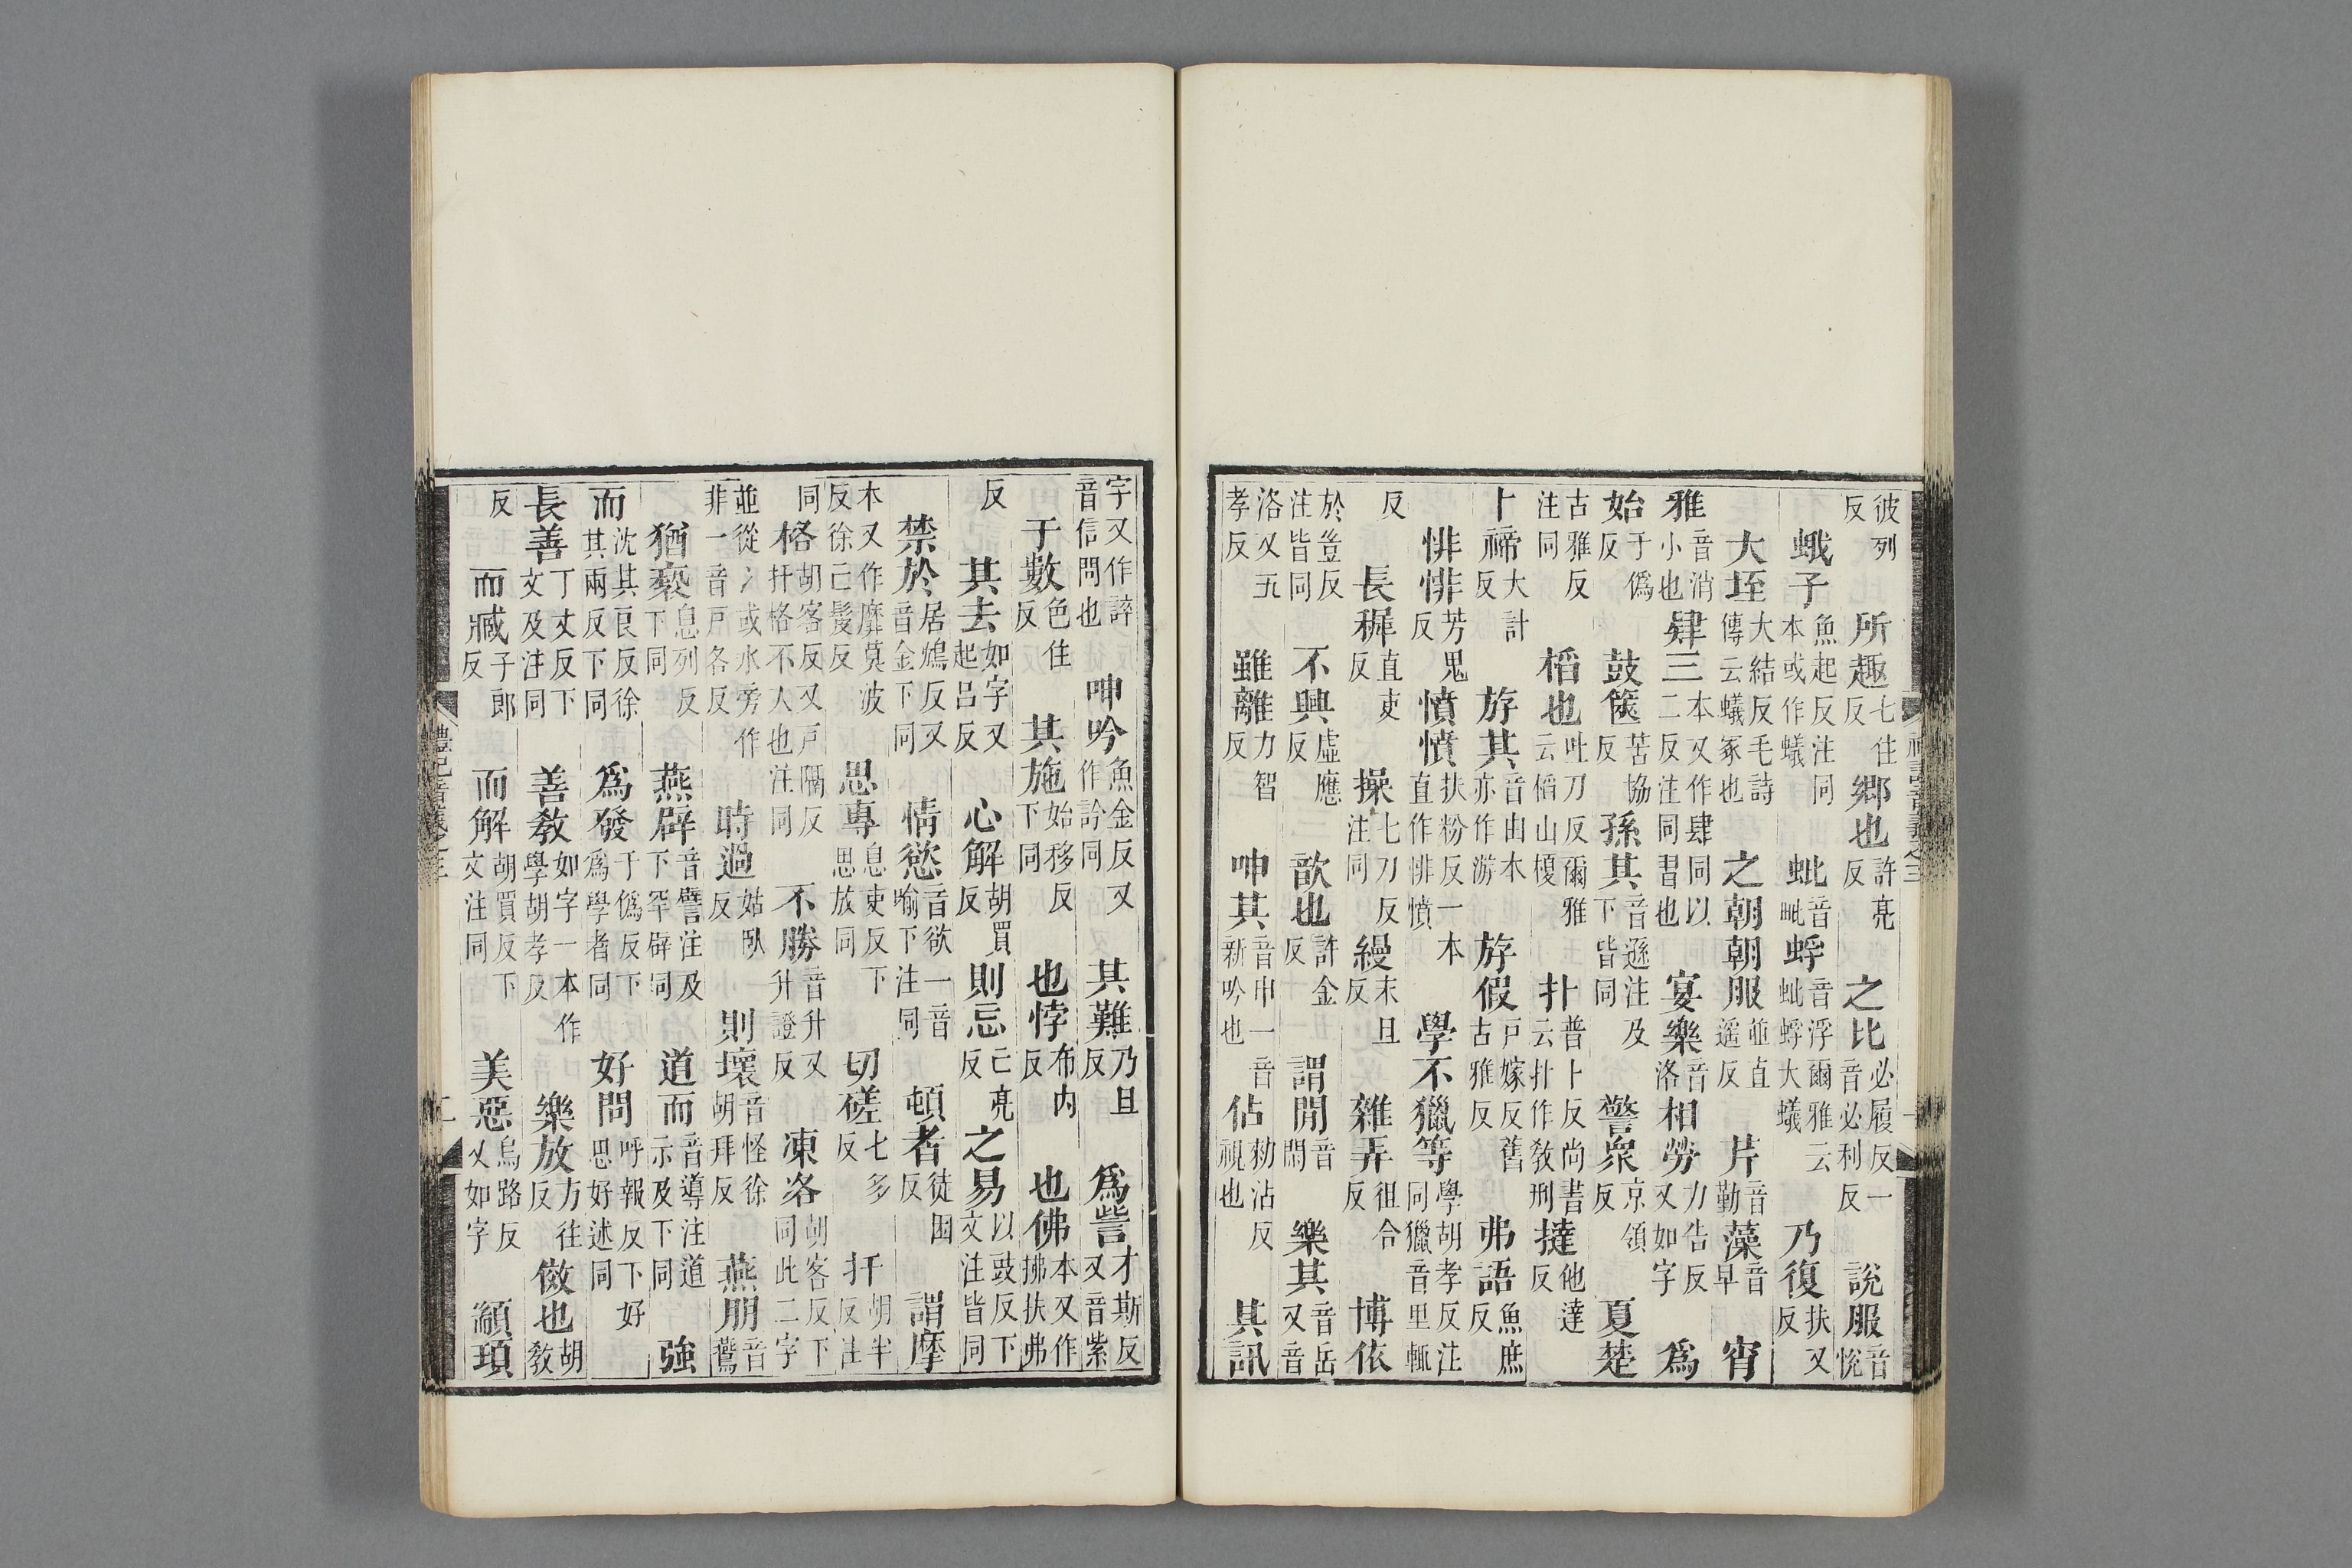 彼列反 所趣七住反 鄉也許亮反 之比必履反一音必利反 說服音悅
蛾子魚起反注同本或作蟻 蚍音毗 蜉音浮爾雅云蚍蜉大蟻 乃復扶又反
大垤大結反毛詩傳云蟻冢也 之朝朝服並直遥反 芹音勤 藻音早 宵
雅音消小也 肄三本又作肆同以二反注同習也 宴樂音洛 相勞力告反又如字 爲
始于僞反 鼓篋苦協反 孫其音遜注及下皆同 警衆京領反 夏楚
古雅反注同 榙也吐刀反爾雅云榙山榎 扑普卜反尚書云扑作敎刑 撻他達反
卜禘大計反 斿其音由本亦作游 斿假戸嫁反舊古雅反 弗語魚庶反
悱悱芳鬼反 憤憤扶粉反一本直作悱憤 學不獵等學胡孝反注同獵音里輒
反 長穉直吏反 操七刀反注同 縵末旦反 雜弄徂合反 博依
於豈反注皆同 不興虛應反 歆也許金反 謂閒音閑 樂其音岳又音
洛又五孝反 雖離力智反 呻其音申一音新吟也 佔勑沾反視也 其訊
字又作誶音信問也 呻吟魚金反又作訡同 其難乃旦反 爲訾才斯反又音紫
于數色住反 其施始移反下同 也悖布内反 也佛本又作拂扶弗
反 其去如字又起呂反 心解胡買反 則忘亡亮反 之易以豉反下文注皆同
禁於居鴆反又音金下同 情慾音欲一音喻下注同 頓者徒困反 謂摩
本又作靡莫波反徐亡髲反 思專息吏反下思放同 切磋七多反 扞胡半反注
同 格胡客反又戸隔反扞格不入也注同 不勝音升又升證反 凍洛胡客反下同此二字
並從冫或水旁作非一音戸各反 時過姑臥反 則壞音怪徐胡拜反 燕朋音鷰
猶褻息列反下同 燕辟音譬注及下罕辟同 道而音導注道示及下同 強
而沈其良反徐其兩反下同 爲發于僞反下爲學者同 好問呼報反下好思好述同
長善丁丈反下文及注同 善敎如字一本作學胡孝反 樂放方往反 傚也胡敎
反 而臧子郎反 而解胡買反下文注同 美惡烏路反又如字 顓頊
禮記音義之三